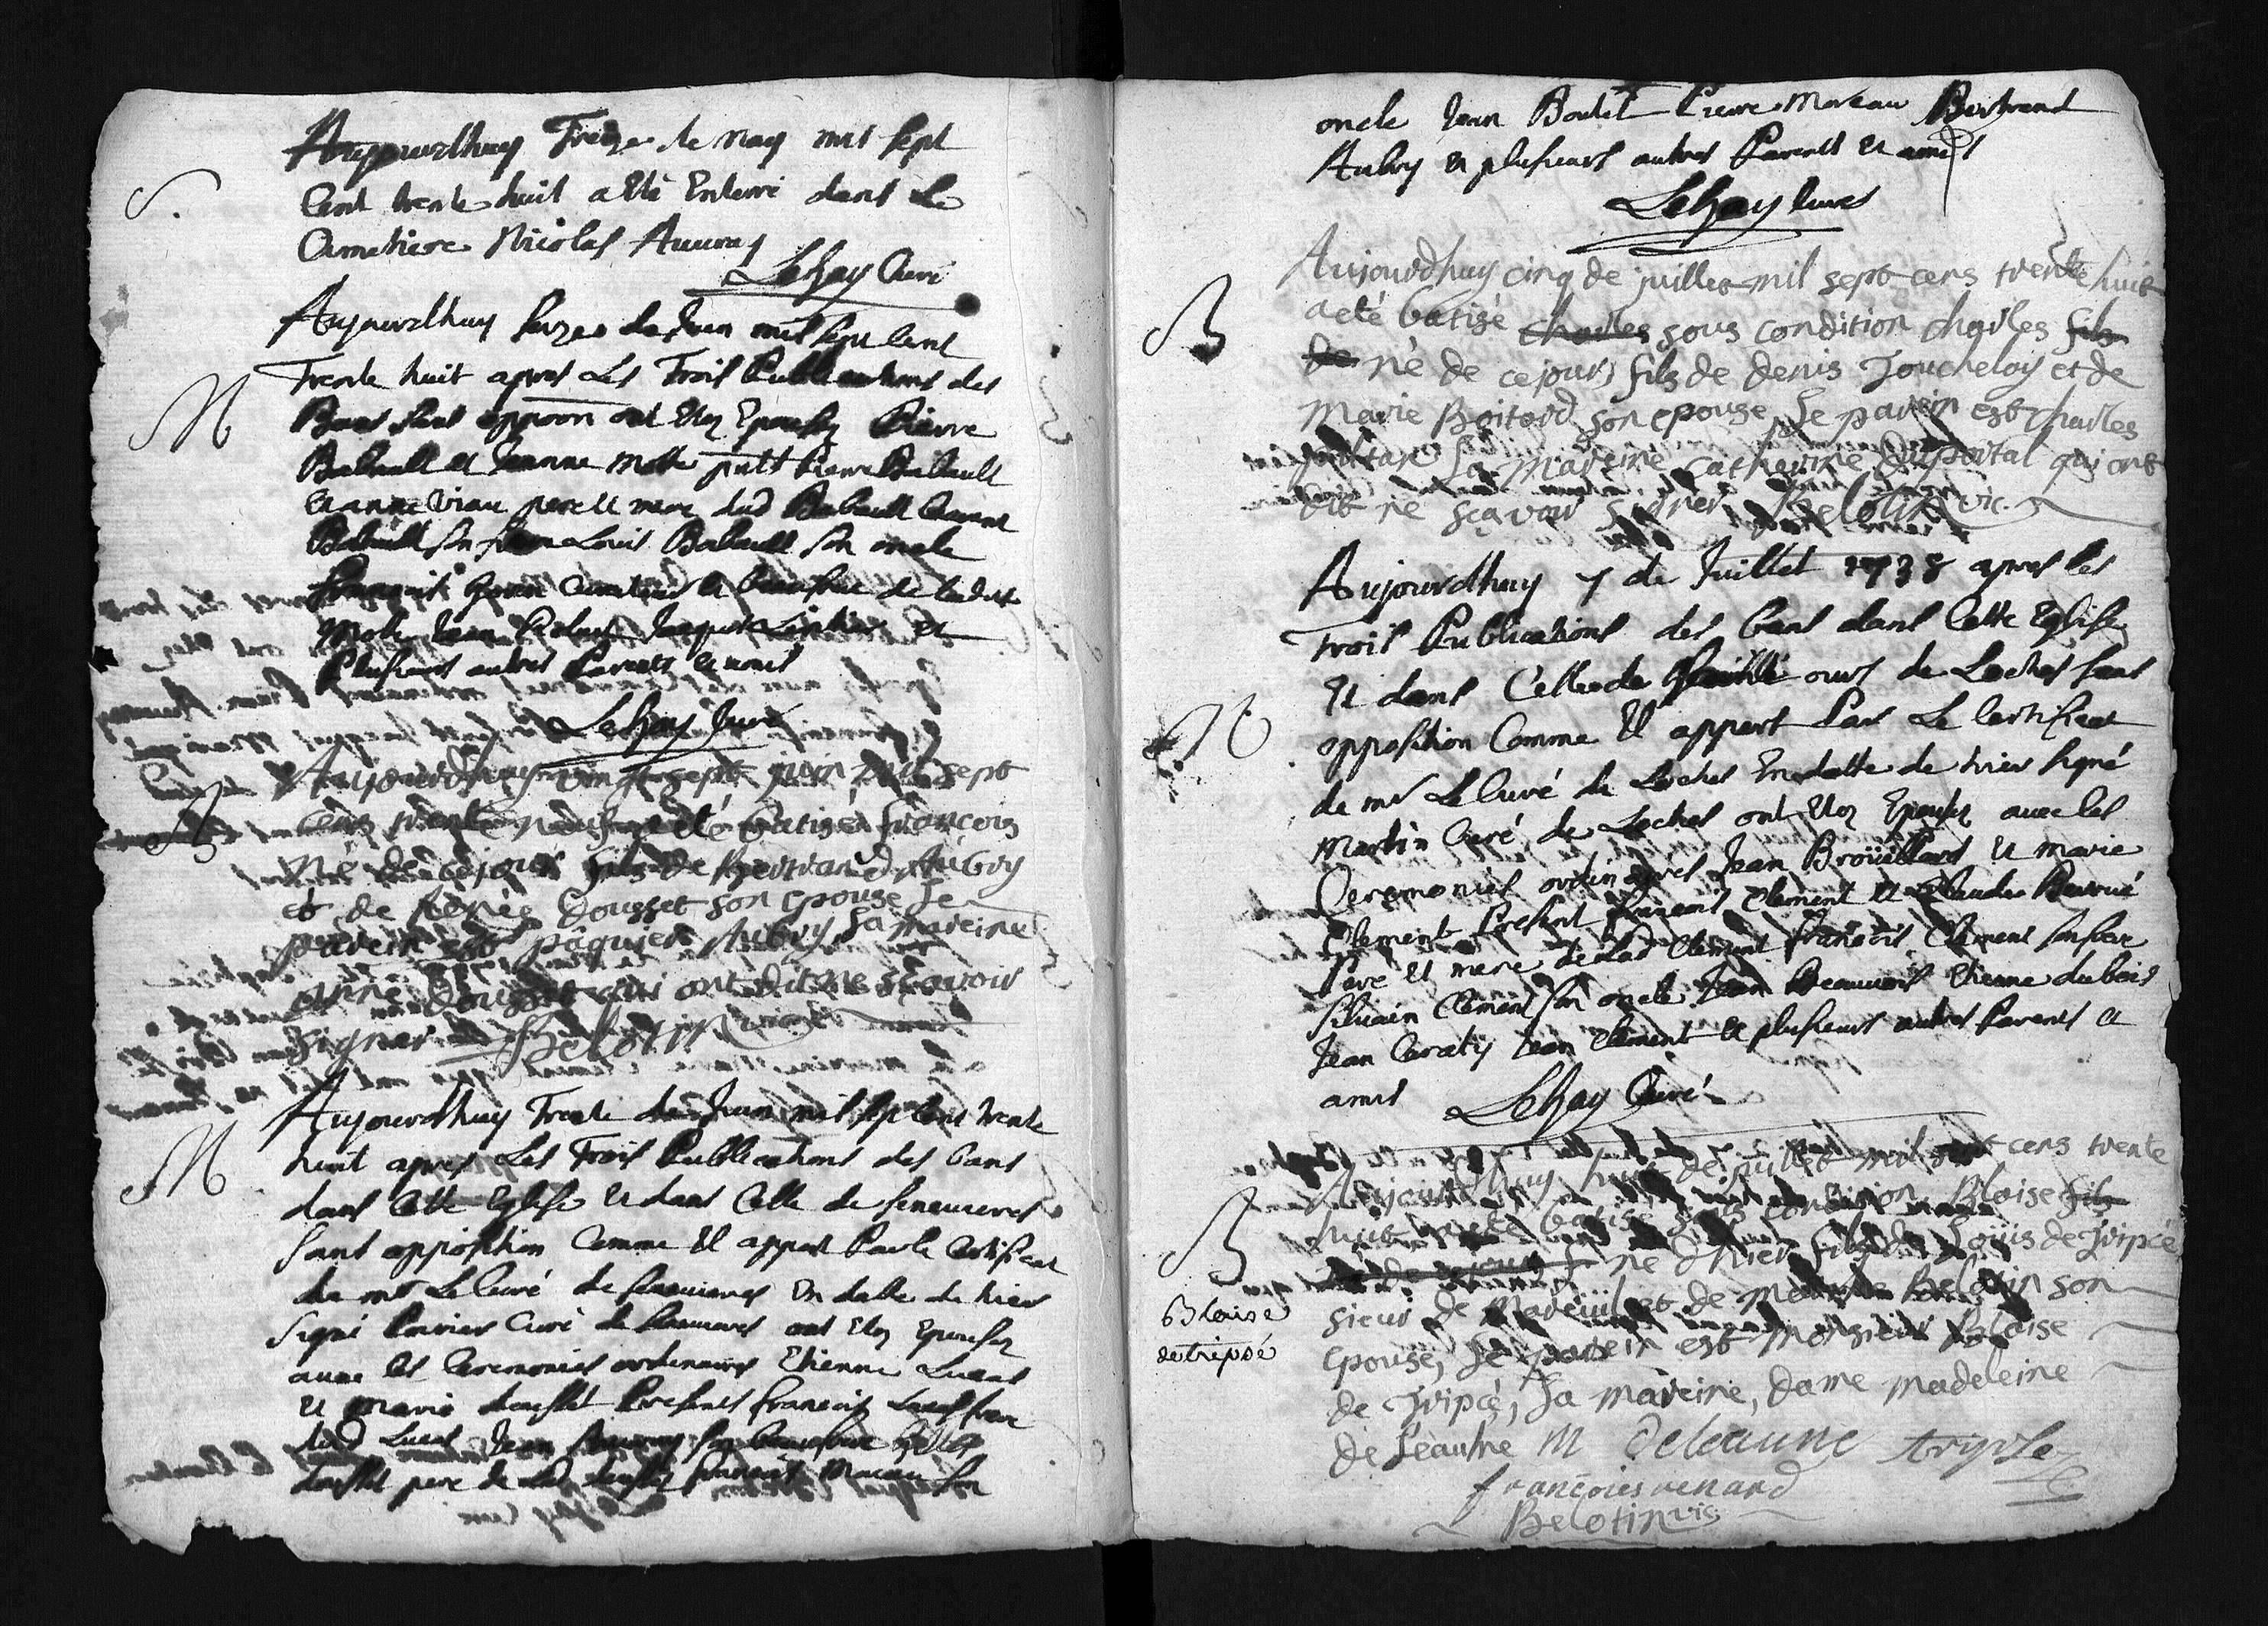 Aujourdhuy Treize de may mil sept
S.
Cent trente huit a Eté Enterré dans Le
Cimetiere Nicolas Auvray
Lehay Curé
Aujourdhuy seize de Juin mil sept cent
M
Trente huit apres Les Trois Publications des
Bans sans opp̅oon ont Etez Epousez Pierre
Babault et Jeanne Motte p̅nts Pierre Babault
et anne Viau pere et mere dud Babault
Babault son Louis Babault son oncle
François et beaufrere de ladite
Motte Jean Jacques et
Plusieurs autres Parents et amis
Lehay Curé
Aujourdhuy vingt sept juin mil sept
B
cens trente a eté batisé françois
né de ce jour fils de Bertrand Aubry
et de Renée Dousset son epouse Le
parein est pâquier Aubry La mareine
anne Dousset qui ont dit ne sçavoir
signer Belotin
Aujourdhuy Trente de Juin mil sept Cent trente
M
huit apres Les Trois Publications des bans
dans Cette Eglise et dans Celle de
sans opposition Comme Il appert Par le Certificat
de mr Le Curé de En datte de hier
signé Poirier Curé de ont Etez Epousez
avec les Ceremonies ordinaires Etienne Lucas
et Marie dousset Presents françois Lucas frere
dud Lucas Jean Auvray son beaufrere
dousset pere de Lad dousset françois Moreau son
oncle Jean Boutet Pierre Moreau Bertrand
Aubry et plusieurs autres Parents et amis
Lehay Curé
Aujourdhuy cinq de juillet mil sept cens trente huit
B
a eté batisé charles sous condition charles fils
de né de ce jour, fils de denis Joucheloy et de
Marie Boitard son epouse, Le parein est charles
La mareine catherine Duportal qui ont
dit ne sçavoir signer, Belotin vic.
Aujourdhuy 7 de Juillet 1738 apres les
Trois Publications des bans dans Cette Eglise
Et dans Celle de ours de Loches sans
M
opposition Comme Il appert Par Le Certificat
de mr Le Curé de Loches En datte de hier signé
Martin Curé de Loches ont Etez Epousez avec les
Ceremonies ordinaires Jean Broüillard et marie
Clement Present françois Clement et Claude
Pere et mere de Lad Clement françois Clement son frere
Silvain Clement son oncle Jean Beauvais Etienne dubois
Jean Caraty Jean Clement et plusieurs autres Parents et
amis Lehay Curé
Aujourdhuy huit de juillet mil sept cens trente
B
huit a eté batisé sous condition Bloise fils
né de ce jour né d'hier fils de Loüis de Tripcé
Bloise
de tripsé
sieur de Mareüil et de Marie Belotin son
epouse, Le parein est Monsieur Bloise
de Tripcé, La mareine, dame madeleine
de Leaulne M deleaune trypse
françois renard
Belotin vic